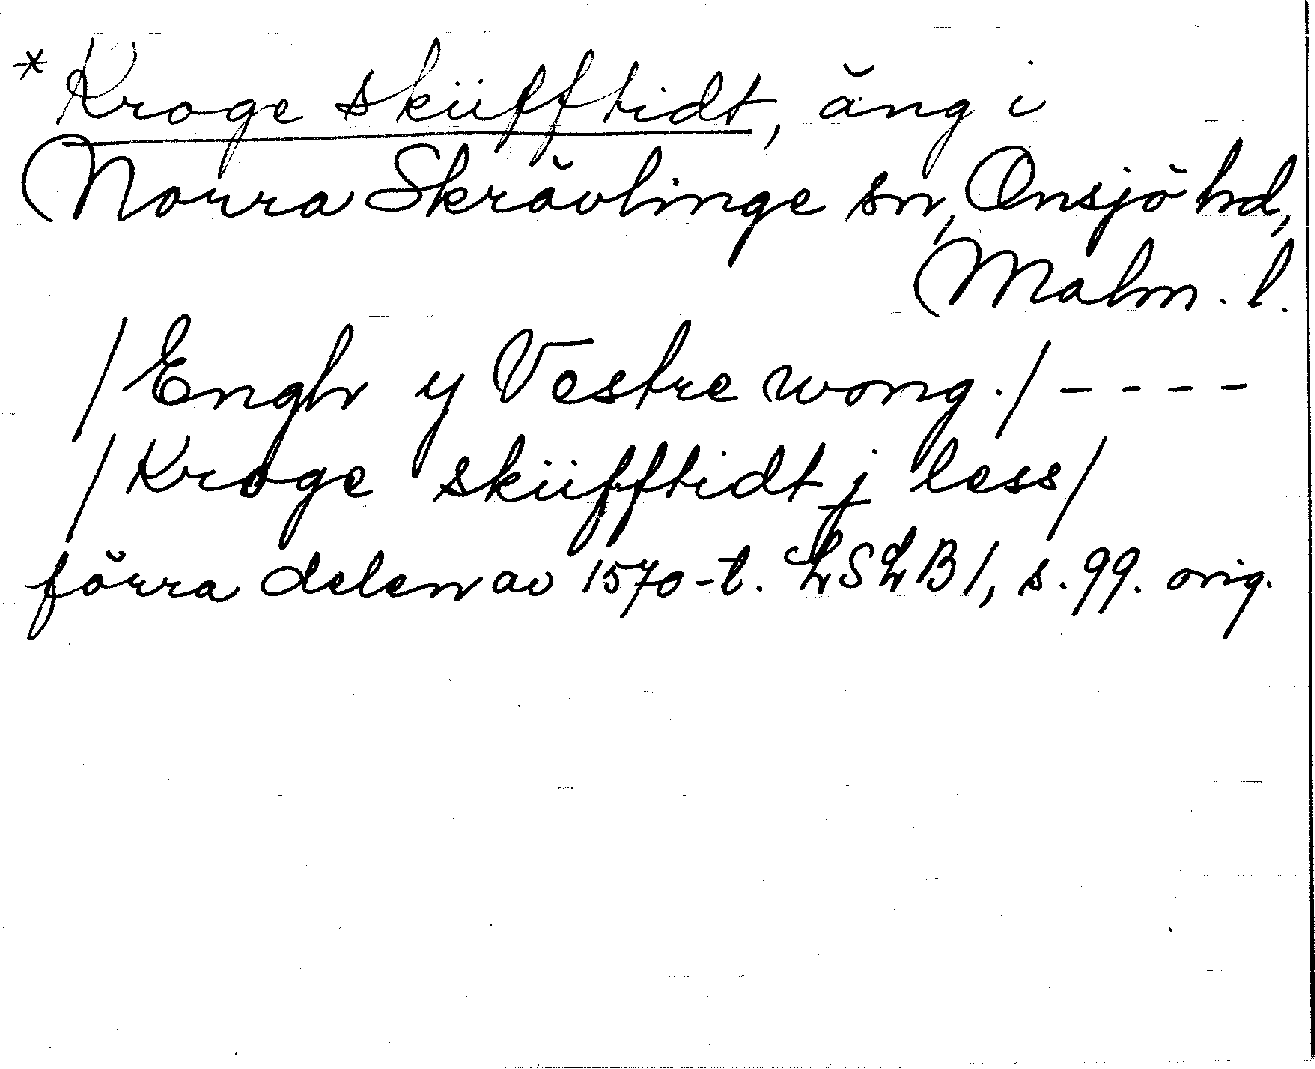 * Kroge sküfftidt, äng i
Norra Skrävlinge sn, Onsjö hd,
Malm. l.
/Engh y Vestre wong./ - - - -
/Kroge skiifftidt j less/
förra delen av 1570-t. LSLB 1, s. 99. orig.